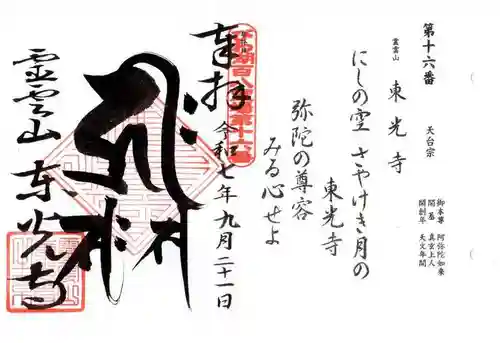 第十六番
天台宗
霊雲山
東光寺
御本尊 阿弥陀如来
開基 真玄上人
開創年 天文年間
にしの空 さやけき月の
東光寺
弥陀の尊容
みる心せよ
奉拝
令和七年九月二十一日
霊雲山 東光寺